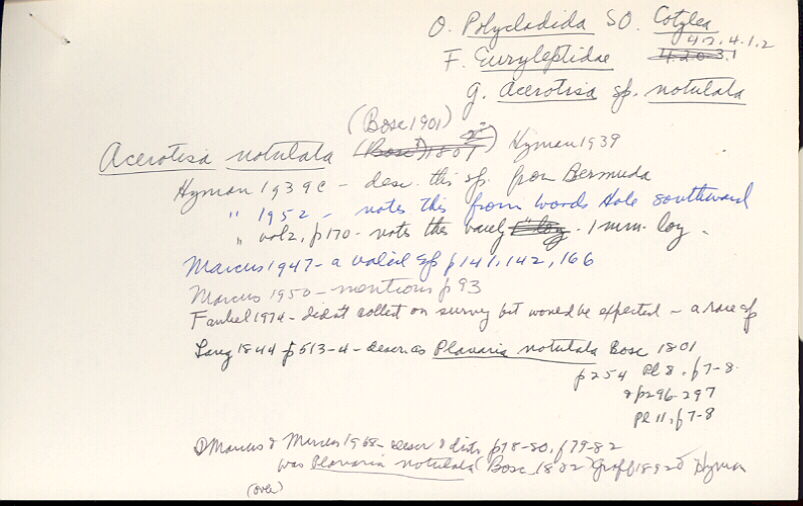 O. Polycladida SO. Cotylea
4.2.4.1.2
F. Euryleptidae 4.2.0.3.1
g. Acerotisa sp. notulata
(Bosc 1901)
Acerotisa notulata (Bosc 1801) Hyman 1939
Hyman 1939c – desc. this sp. from Bermuda
" 1952 – notes this from Woods Hole southward
" vol2, p170 – notes this barely 1" long. 1 mm. long.
Marcus 1947 – a valid sp p141, 142, 166
Marcus 1950 – mentions p93
1974 – didn't collect on survey but would be expected – a rare sp
Lang 1844 p513-4 – descr as Planaria notulata Bosc 1801
p254 Pl 8, f7-8
& p296-297
Pl 11, f7-8
Marcus & Marcus 1968 – descr & dist p78-80, f79-82
was Planaria notulata (Bosc 1802) Graff 1892 Hyman
(over)